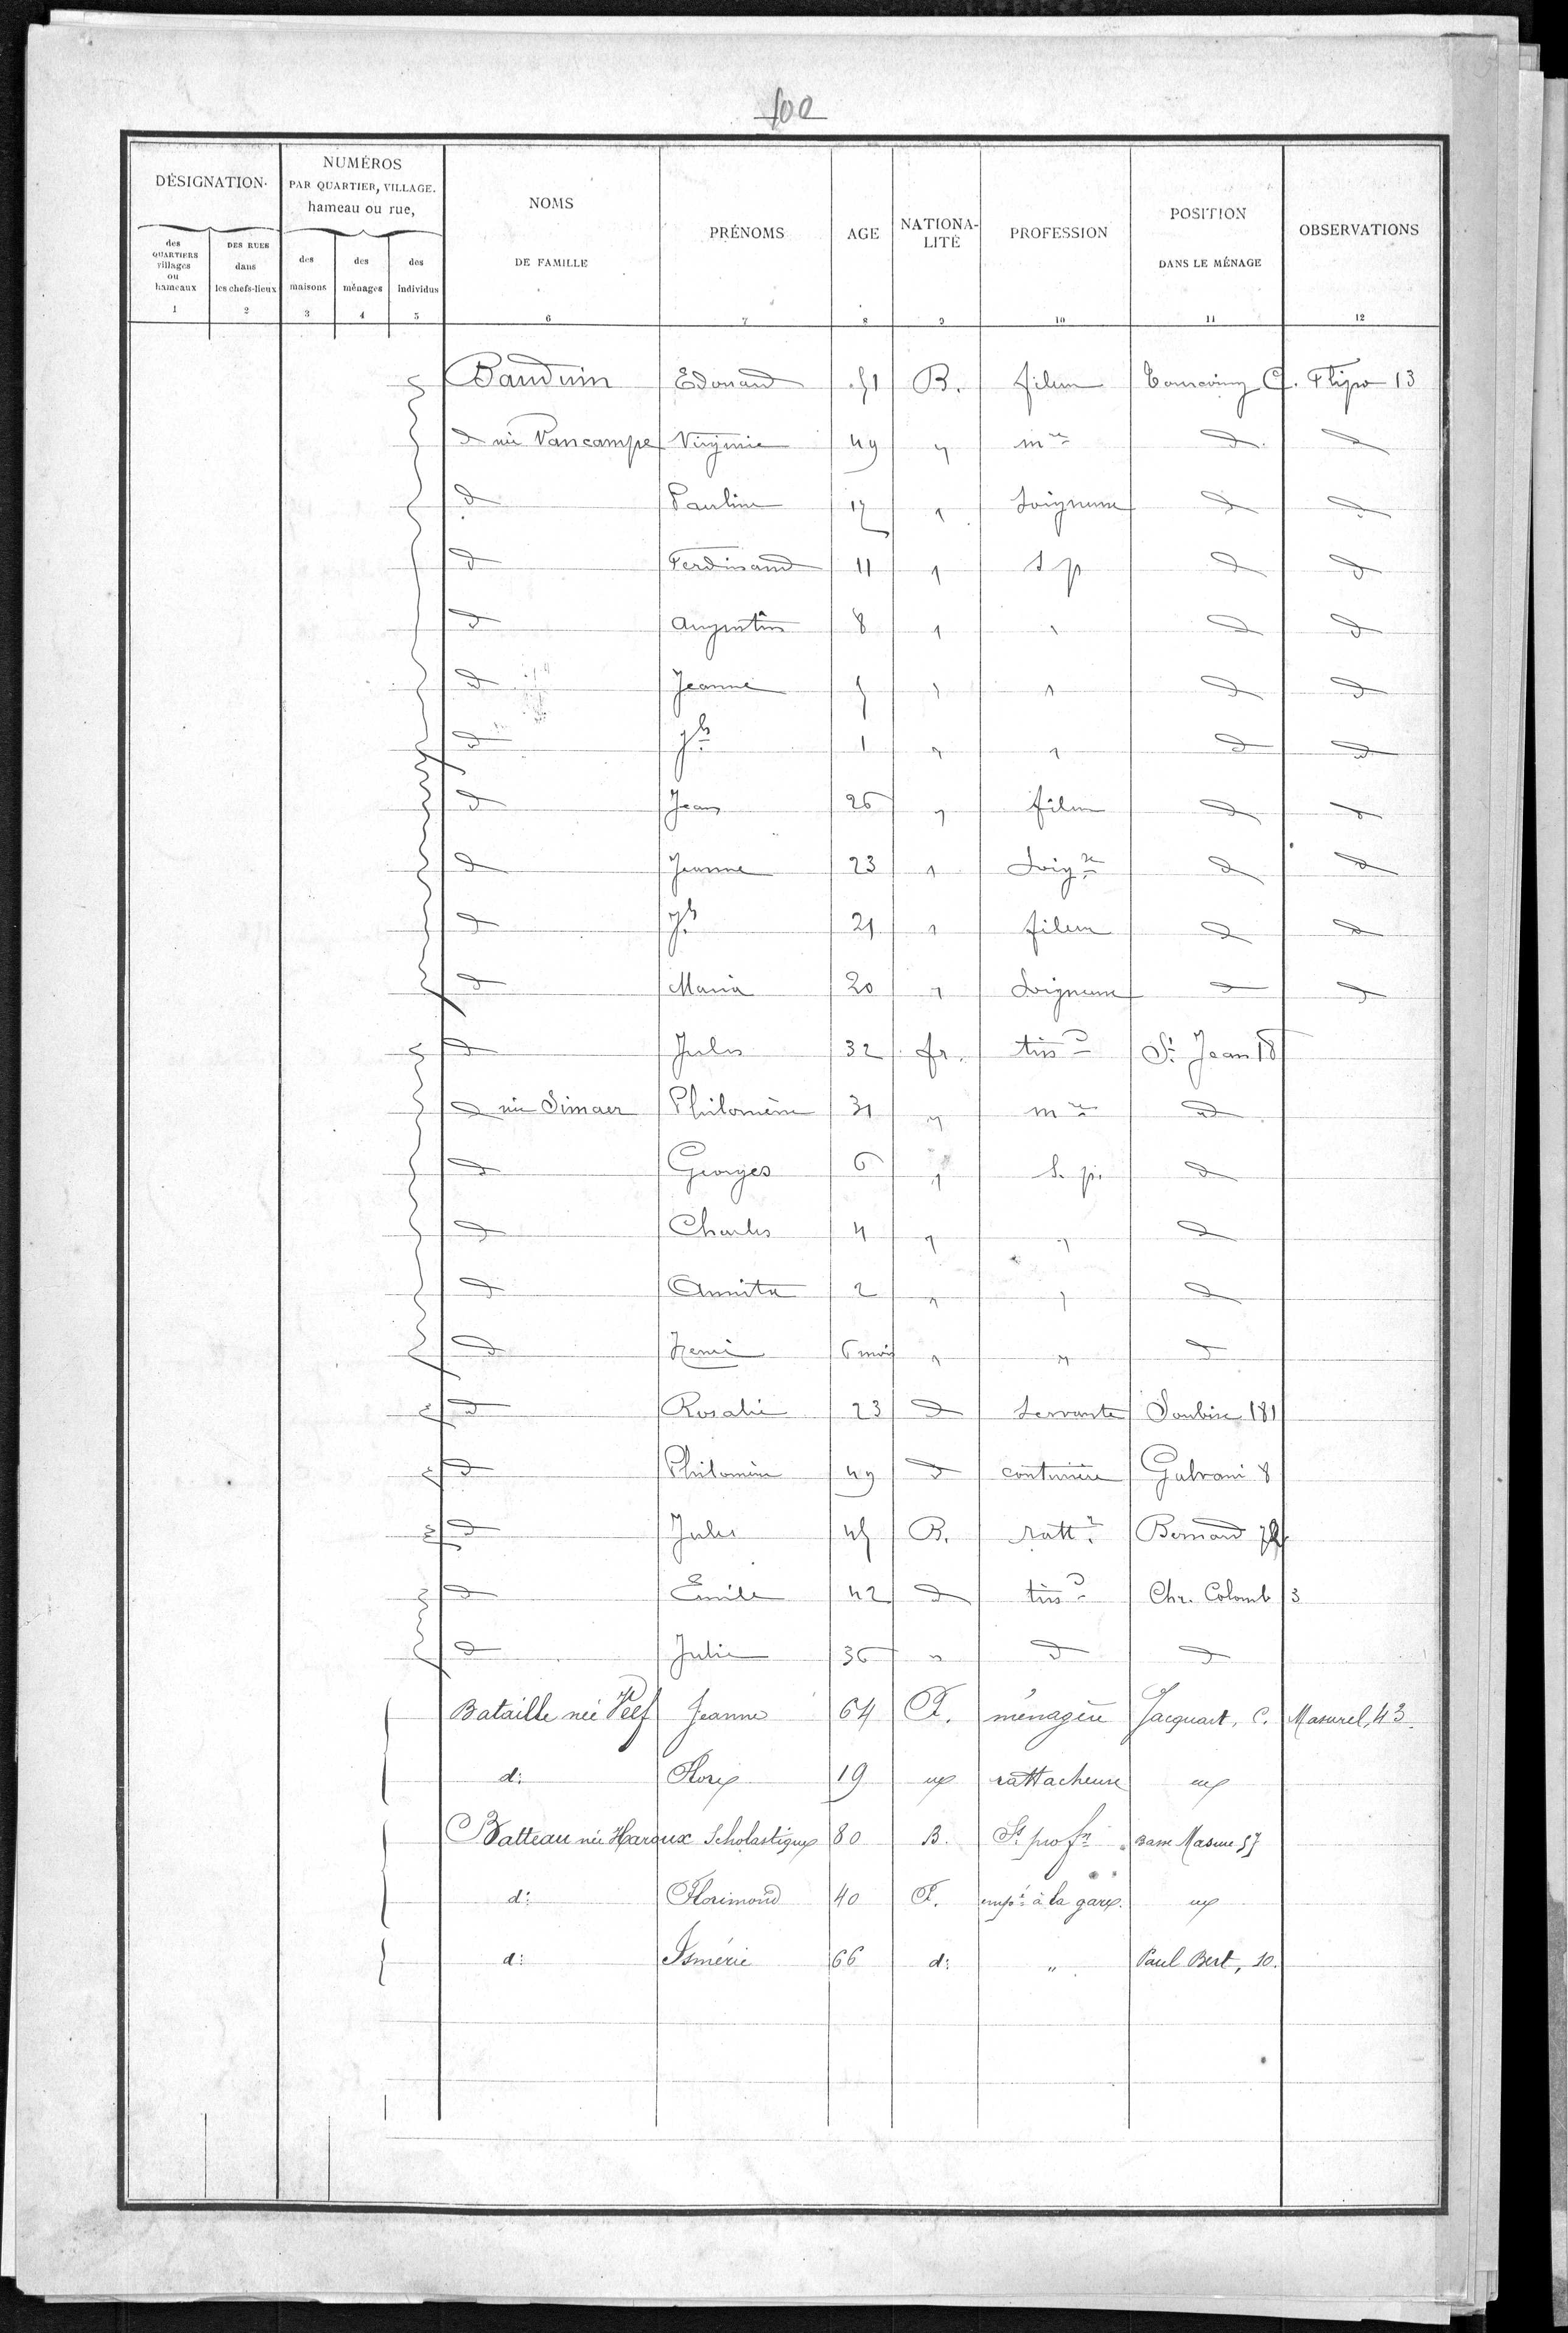 100
DÉSIGNATION
NUMÉROS
PAR QUARTIER, VILLAGE.
hameau ou rue,
NOMS
DE FAMILLE
PRÉNOMS
AGE
NATIONA-
LITÉ
PROFESSION
POSITION
DANS LE MÉNAGE
OBSERVATIONS
des
QUARTIERS
villages
ou
hameaux
DES RUES
dans
les chefs-lieux
des
maisons
des
ménages
des
individus
1 2 3 4 5 6 7 8 9 10 11 12
Bauduin Edouard 51 B. fileur Tourcoing C. Flipo 13
d née Vancampe Virginie 49 " mre d d
d Pauline 17 " Soigneuse d d
d Ferdinand 11 " s p d d
d Augustin 8 " " d d
d Jeanne 5 " " d d
d Jh 1 " " d d
d Jean 26 " fileur d d
d Jeanne 23 " Soigse d d
d Jh 21 " fileur d d
d Maria 20 " Soigneuse d d
d Jules 32 fr. tissd St Jean 18
d née Simaer Philomène 31 " mre d
d Georges 6 " S. p. d
d Charles 4 " " d
d Annita 2 " " d
d Henri 6 mois " " d
d Rosalie 23 d servante Soubise 181
d Philomène 49 d couturière Galvani 8
d Jules 45 B. rattr Bernard
d Emile 42 d tissd Chr. Colomb 3
d Julie 36 " d d
Bataille née Jeanne 64 F. ménagère Jacquart, C. Masurel, 43.
d: Flore 19 rattacheuse
Batteau née Haroux Scholastique 80 B. Ss profn Basse Masure 57
d: Florimond 40 F. empé à la gare.
d: Ismérie 66 d: " Paul Bert, 10.